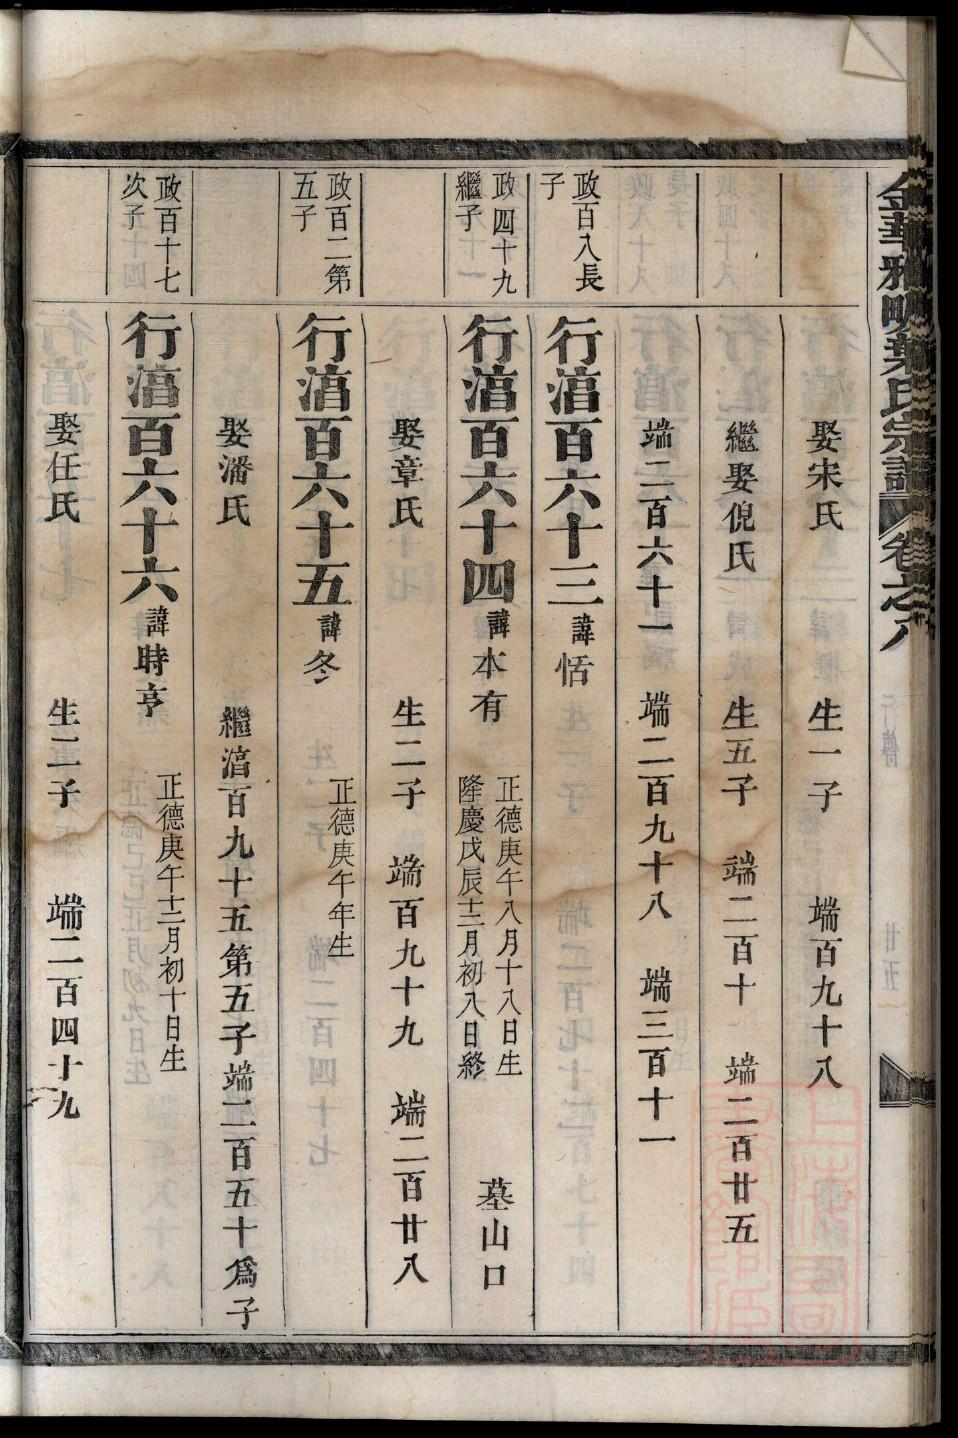 金華雅畈葉氏宗譜 卷之八 行傳 廿五
娶宋氏 生一子 端百九十八
繼娶倪氏 生五子 端二百十 端二百廿五
端二百六十一 端二百九十八 端三百十一
政百八長子
行湻百六十三 諱恬
政四十九繼子
行湻百六十四 諱本有 正德庚午八月十八日生 隆慶戊辰十二月初八日終 墓山口
娶章氏 生二子 端百九十九 端二百廿八
政百二第五子
行湻百六十五 諱冬 正德庚午年生
娶潘氏 繼湻百九十五第五子端二百五十爲子
政百十七次子
行湻百六十六 諱時亨 正德庚午十二月初十日生
娶任氏 生二子 端二百四十九